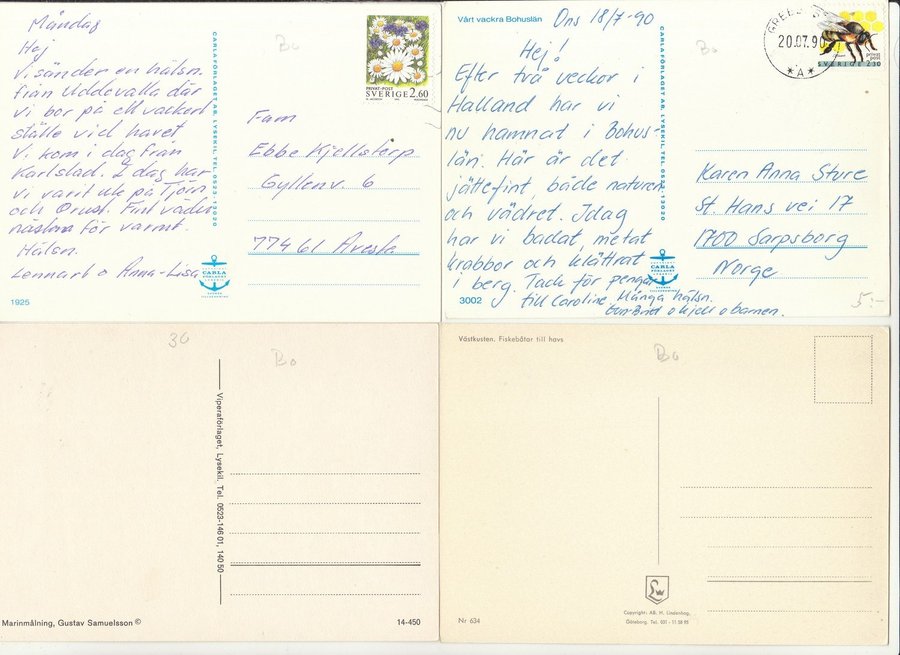 Måndag
Hej
Vi sänder en hälsn.
från Uddevalla där
vi bor på ett vackert
ställe vid havet
Vi kom i dag från
Karlstad. I dag har
vi varit ute på Tjörn
och Orust. Fint väder
nästan för varmt.
Hälsn.
Lennart o Anna-Lisa
1925
CARLAFÖRLAGET AB, LYSEKIL, TEL. 0523-13020
CARLA
FÖRLAGET
Bo
PRIVAT-POST
SVERIGE 2.60
Fam
Ebbe Kjellstorp
Gyllenv. 6
774 61 Avesta
Vårt vackra Bohuslän
Ons 18/7-90
Hej!
Efter två veckor i
Halland har vi
nu hamnat i Bohus-
län. Här är det
jättefint, både naturen
och vädret. Idag
har vi badat, metat
krabbor och klättrat
i berg. Tack för pengar
till Caroline. Många hälsn.
o Kjell o barnen.
3002
CARLAFÖRLAGET AB, LYSEKIL, TEL. 0523-13020
CARLA
FÖRLAGET
Bo
20.07.90
*A*
privat
post
SVERIGE 2.30
Karen Anna Sture
St. Hans vei 17
1700 Sarpsborg
Norge
5:-
30
Bo
Viperaförlaget, Lysekil. Tel. 0523-146 01, 140 50
Marinmålning, Gustav Samuelsson ©
14-450
Västkusten. Fiskebåtar till havs
Bo
Nr 634
Copyright: AB. H. Lindenhag,
Göteborg. Tel. 031 - 11 58 95